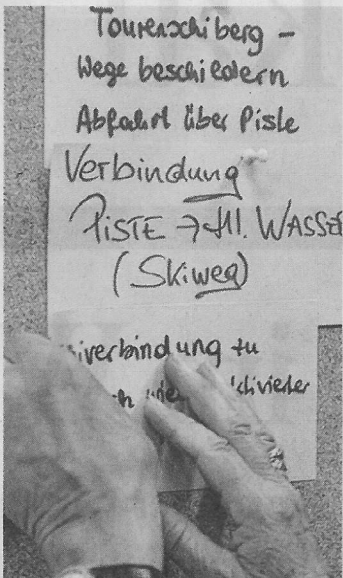 Tourenschiberg –
Wege beschildern
Abfahrt über Piste
Verbindung
PISTE → Hl. WASSER
(Skiweg)
iverbindung zu